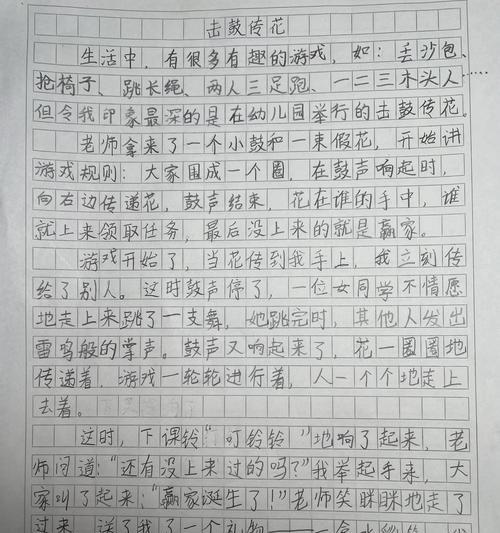 击鼓传花
生活中，有很多有趣的游戏，如：丢沙包、
抢椅子、跳长绳、两人三足跑、一二三木头人……
但令我印象最深的是在幼儿园举行的击鼓传花。
老师拿来了一个小鼓和一束假花，开始讲
游戏规则：大家围成一个圈，在鼓声响起时，
向右边传递花，鼓声结束，花在谁的手中，谁
就上来领取任务，最后没上来的就是赢家。
游戏开始了，当花传到我手上，我立刻传
给了别人。这时鼓声停了，一位女同学不情愿
地走上来跳了一支舞，她跳完时，其他人发出
雷鸣般的掌声。鼓声又响起来了，花一圈圈地
传递着，游戏一轮轮进行着，人一个个地走上
去着。
这时，下课铃“叮铃铃”地响了起来，老
师问道：“还有没上来过的吗？”我举起手来，大
家叫了起来：“赢家诞生了！”老师笑眯眯地走了
过来，送了我了一个礼物——一盒水